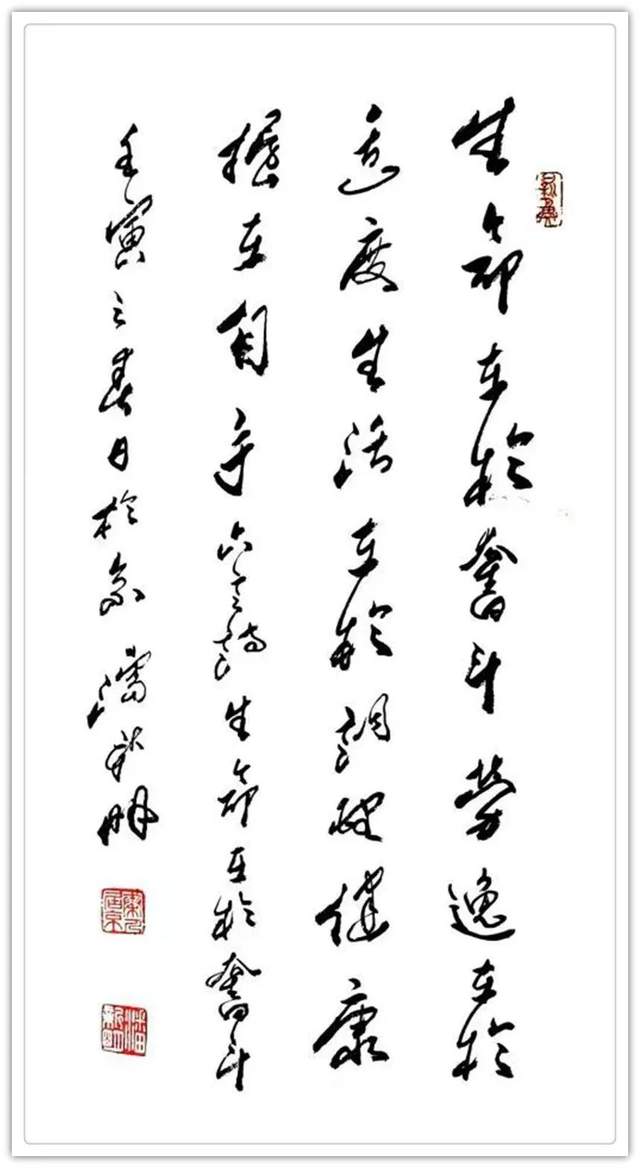 生命在於奮斗勞逸在於
适度生活在於調理健康
握在自手六言詩生命在於奮斗
壬寅之春日於京潘新明